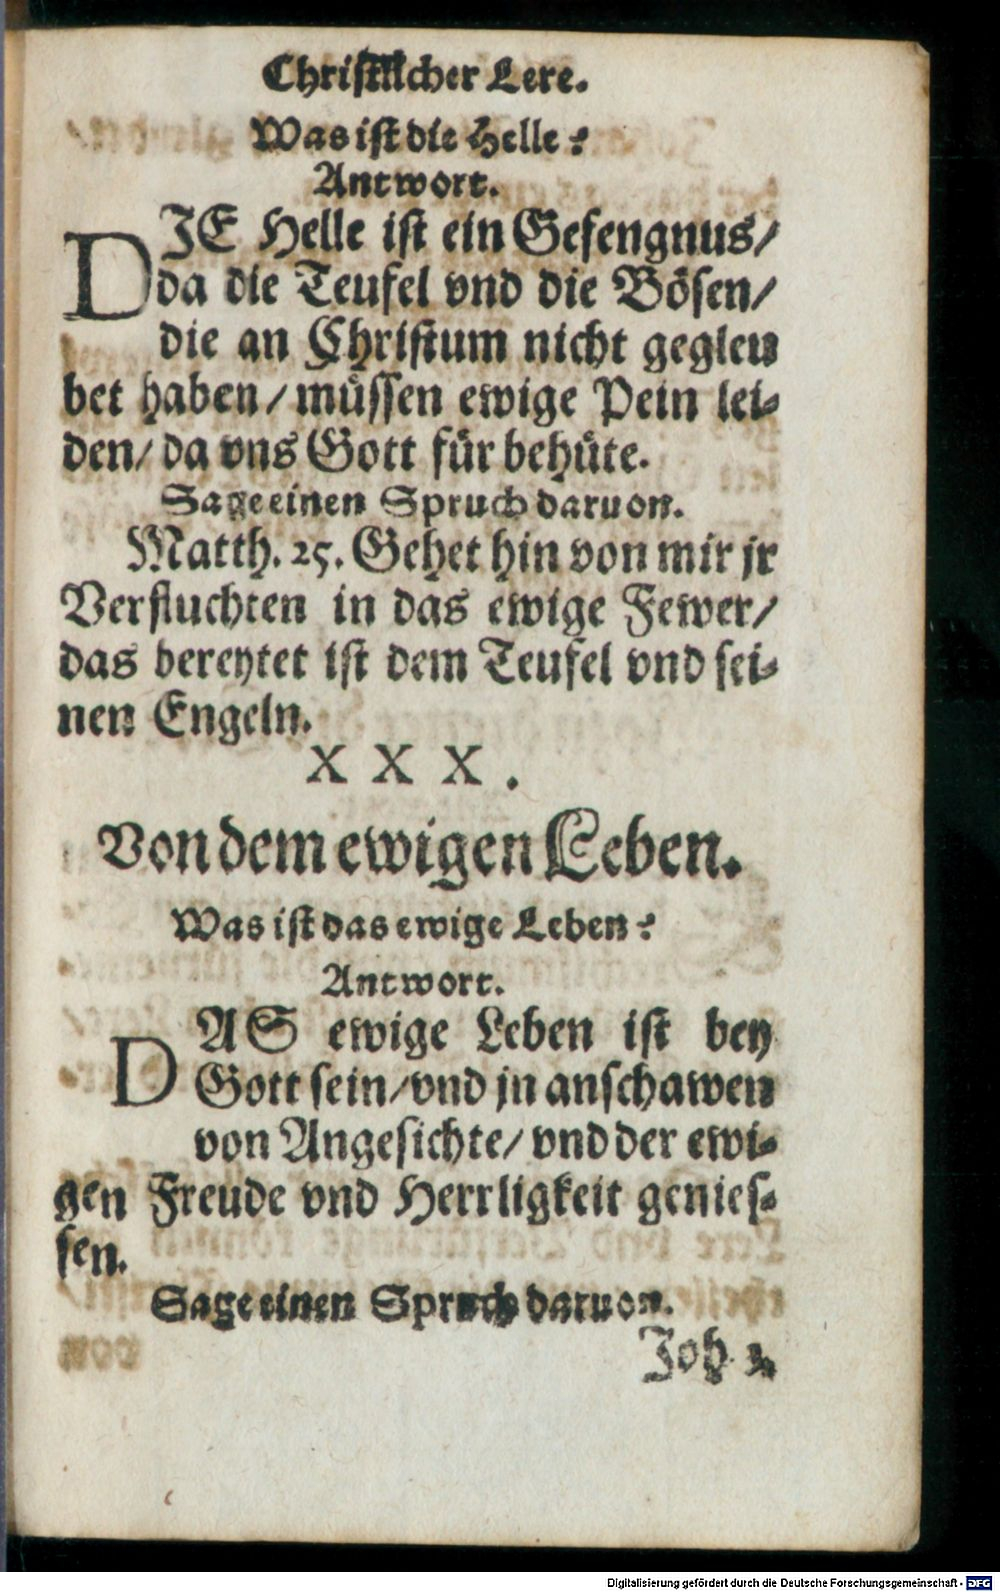 Christlicher Lere.
Was ist die Helle?
Antwort.
DIE Helle ist ein Gefengnus/
da die Teufel vnd die Bösen/
die an Christum nicht gegleu
bet haben/ müssen ewige Pein lei-
den/ da vns Gott für behüte.
Sage einen Spruch daruon.
Matth. 25. Gehet hin von mir jr
Verfluchten in das ewige Fewer/
das bereytet ist dem Teufel vnd sei-
nen Engeln.
XXX.
Von dem ewigen Leben.
Was ist das ewige Leben?
Antwort.
DAS ewige Leben ist bey
Gott sein/ vnd jn anschawen
von Angesichte/ vnd der ewi-
gen Freude vnd Herrligkeit genies-
sen.
Sage einen Spruch daruon.
Joh
Digitalisierung gefördert durch die Deutsche Forschungsgemeinschaft - DFG